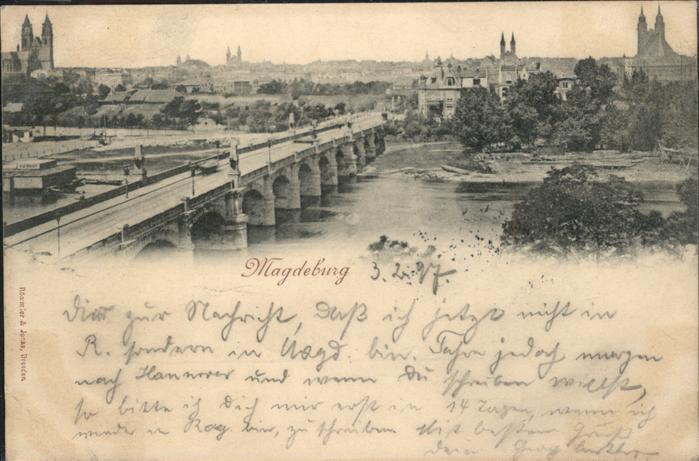 Magdeburg 3.2.97
Dir zur Nachricht, daß ich jetzt nicht in
R. sondern in Magd. bin. Fahre jedoch morgen
nach Hannover und wenn Du schreiben willst,
so bitte ich Dich mir erst in 14 Tagen, wenn ich
wieder in Rag. bin, zu schreiben Mit bestem Gruß
dein Georg
Römmler & Jonas, Dresden.